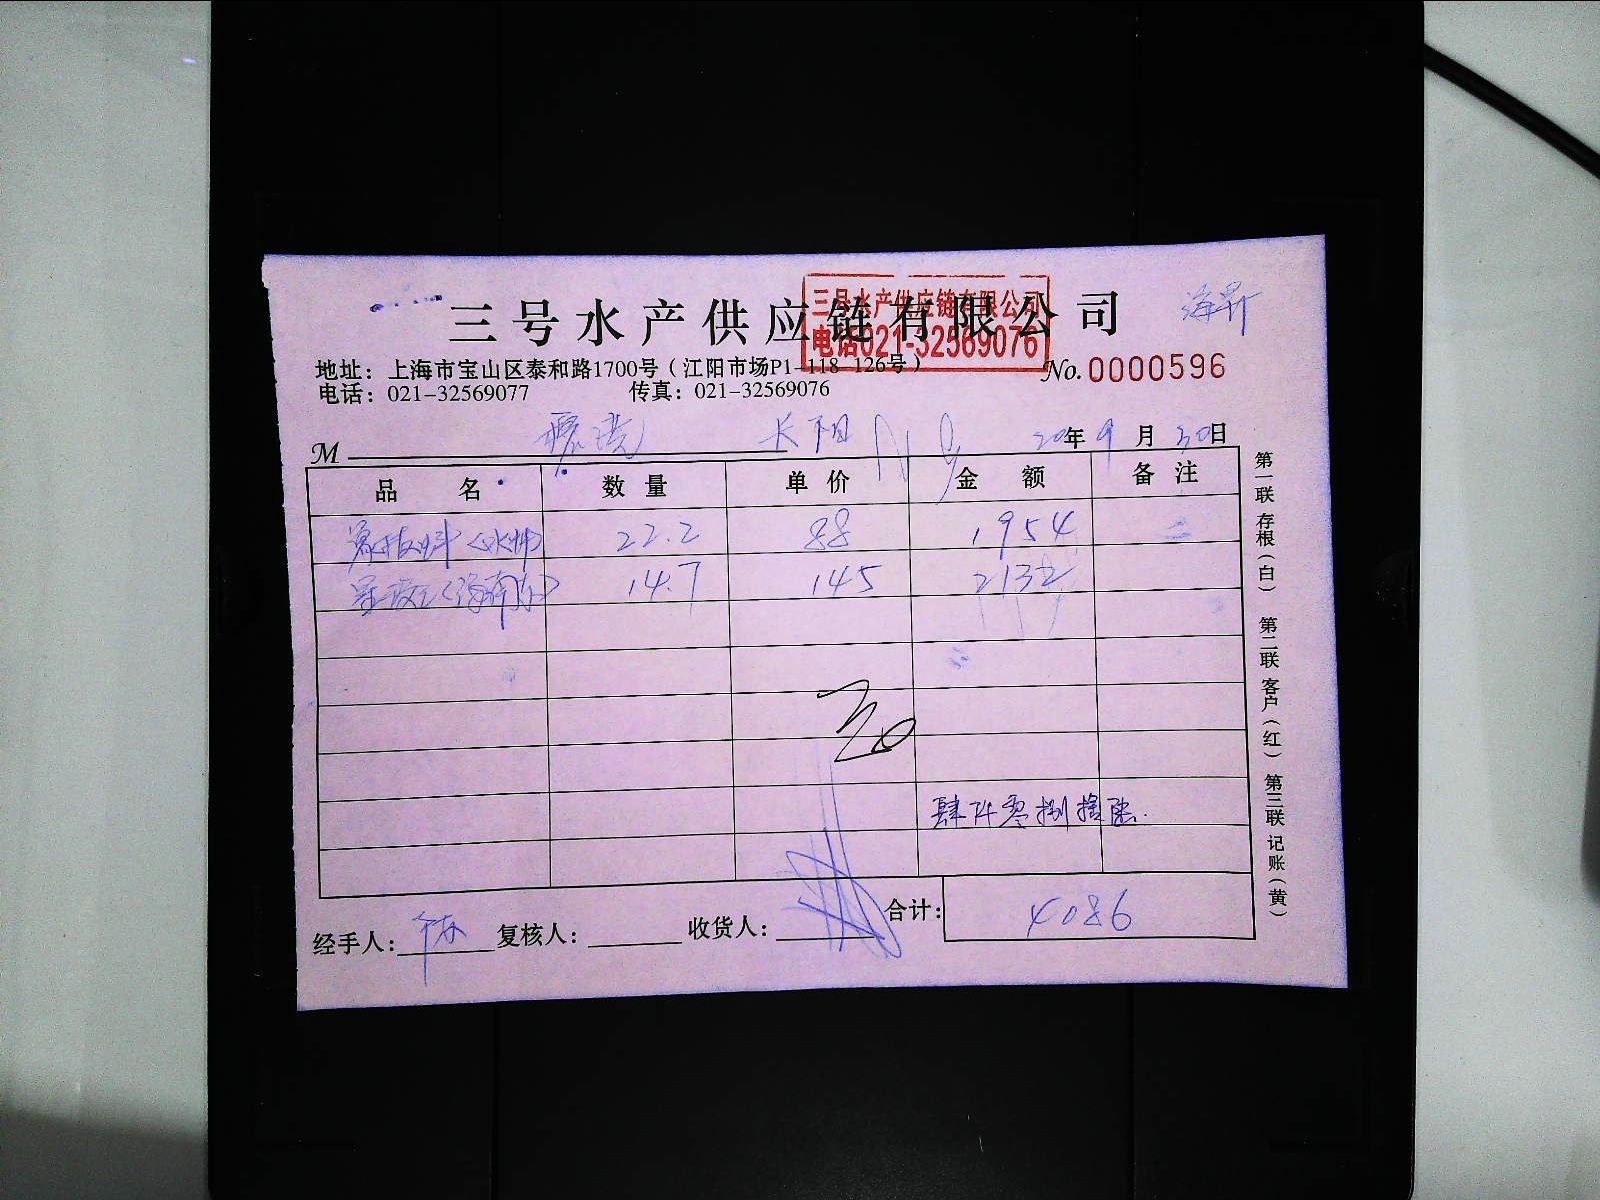 三号水产供应链有限公司
三号水产供应链有限公司
电话021-32569076
地址：上海市宝山区泰和路1700号（江阳市场P1-118-126号）
No.0000596
电话：021-32569077 传真：021-32569076
M 长阳 20年9月30日
品名 数量 单价 金额 备注
22.2 88 1954
14.7 145 2132
30
肆仟零捌拾陆.
经手人： 复核人： 收货人： 合计： 4086
第一联 存根（白） 第二联 客户（红） 第三联 记账（黄）